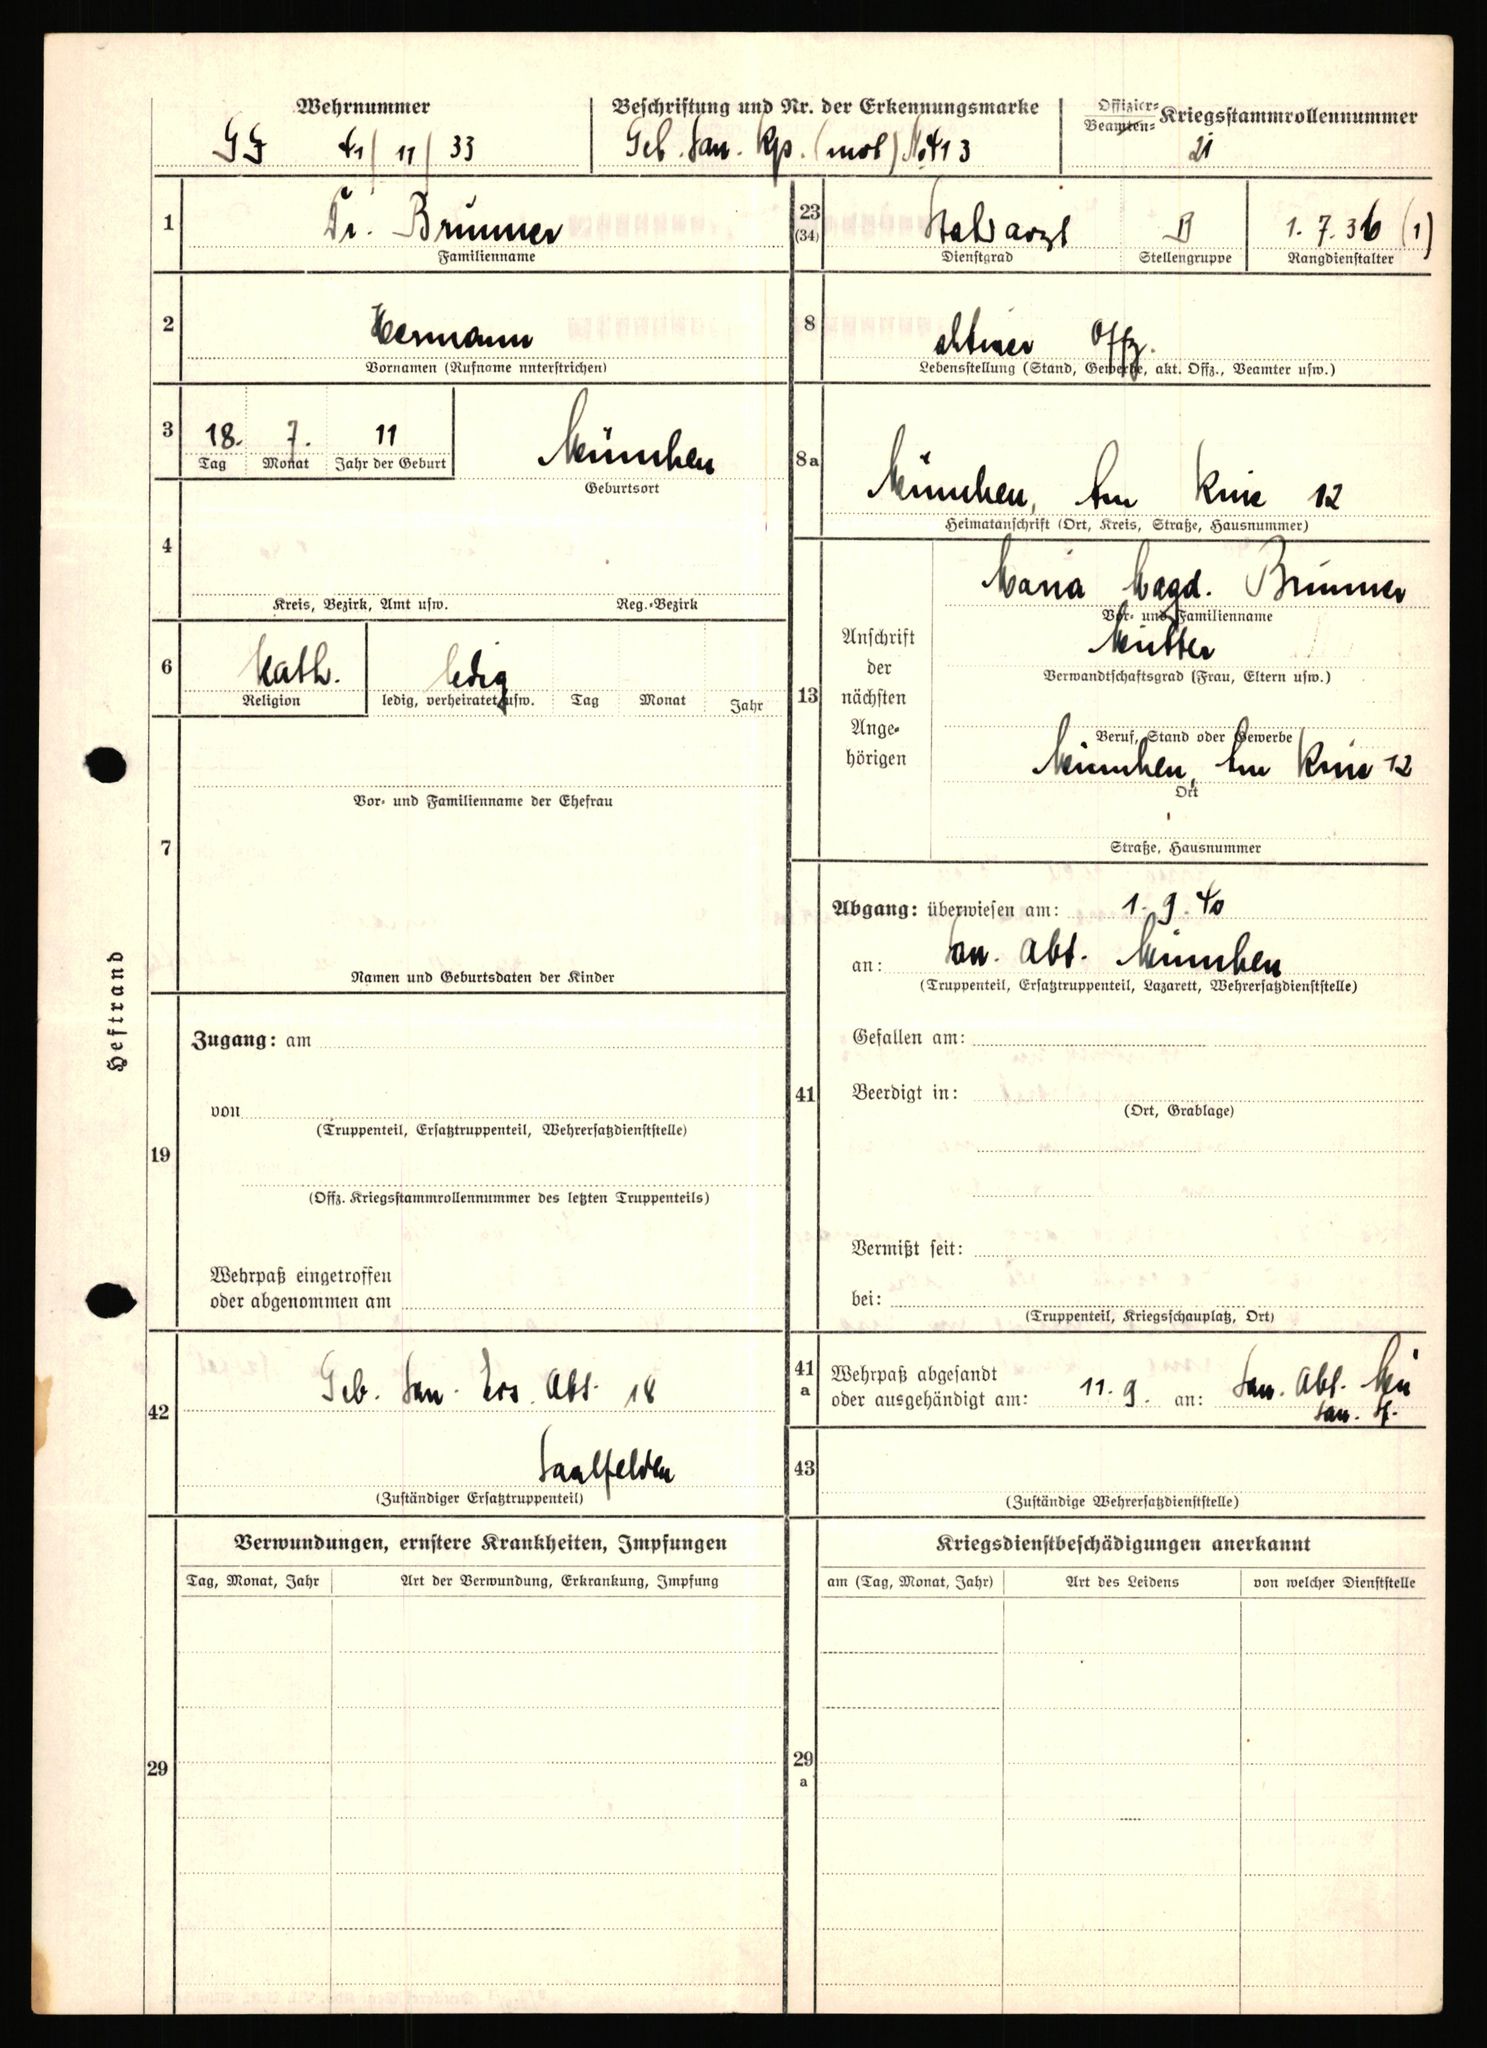 Wehrnummer
11 / 33
Beschriftung und Nr. der Erkennungsmarke
Geb. San. Kp. (mot) No 413
Offizier-
Beamten-
Kriegsstammrollennummer
21
1
Dr. Brunner
Familienname
2
Hermann
Vornamen (Rufname unterstrichen)
3
18. 7. 11
Tag Monat Jahr der Geburt
München
Geburtsort
4
Kreis, Bezirk, Amt usw. Reg.-Bezirk
6
Kath.
Religion
ledig
ledig, verheiratet usw. Tag Monat Jahr
Vor- und Familienname der Ehefrau
7
Namen und Geburtsdaten der Kinder
Heftrand
19
Zugang: am
von
(Truppenteil, Ersatztruppenteil, Wehrersatzdienststelle)
(Offz. Kriegsstammrollennummer des letzten Truppenteils)
Wehrpaß eingetroffen
oder abgenommen am
42
Geb. San. Ers. Abt. 18
Saalfelden
(Zuständiger Ersatztruppenteil)
Verwundungen, ernstere Krankheiten, Impfungen
Tag, Monat, Jahr Art der Verwundung, Erkrankung, Impfung
29
23
(34)
Stabsarzt B 1. 7. 36 (1)
Dienstgrad Stellengruppe Rangdienstalter
8
aktiver Offz.
Lebensstellung (Stand, Gewerbe, akt. Offz., Beamter usw.)
8a
München, Am Knie 12
Heimatanschrift (Ort, Kreis, Straße, Hausnummer)
13
Anschrift
der
nächsten
Ange-
hörigen
Maria Magd. Brunner
Vor- und Familienname
Mutter
Verwandtschaftsgrad (Frau, Eltern usw.)
Beruf, Stand oder Gewerbe
München, Am Knie 12
Ort
Straße, Hausnummer
41
Abgang: überwiesen am: 1. 9. 40
an: San. Abt. München
(Truppenteil, Ersatztruppenteil, Lazarett, Wehrersatzdienststelle)
Gefallen am:
Beerdigt in:
(Ort, Grablage)
Vermißt seit:
bei:
(Truppenteil, Kriegsschauplatz, Ort)
41
a
Wehrpaß abgesandt
oder ausgehändigt am: 11. 9. an: San. Abt. Mü
San. St.
43
(Zuständige Wehrersatzdienststelle)
Kriegsdienstbeschädigungen anerkannt
am (Tag, Monat, Jahr) Art des Leidens von welcher Dienststelle
29
a